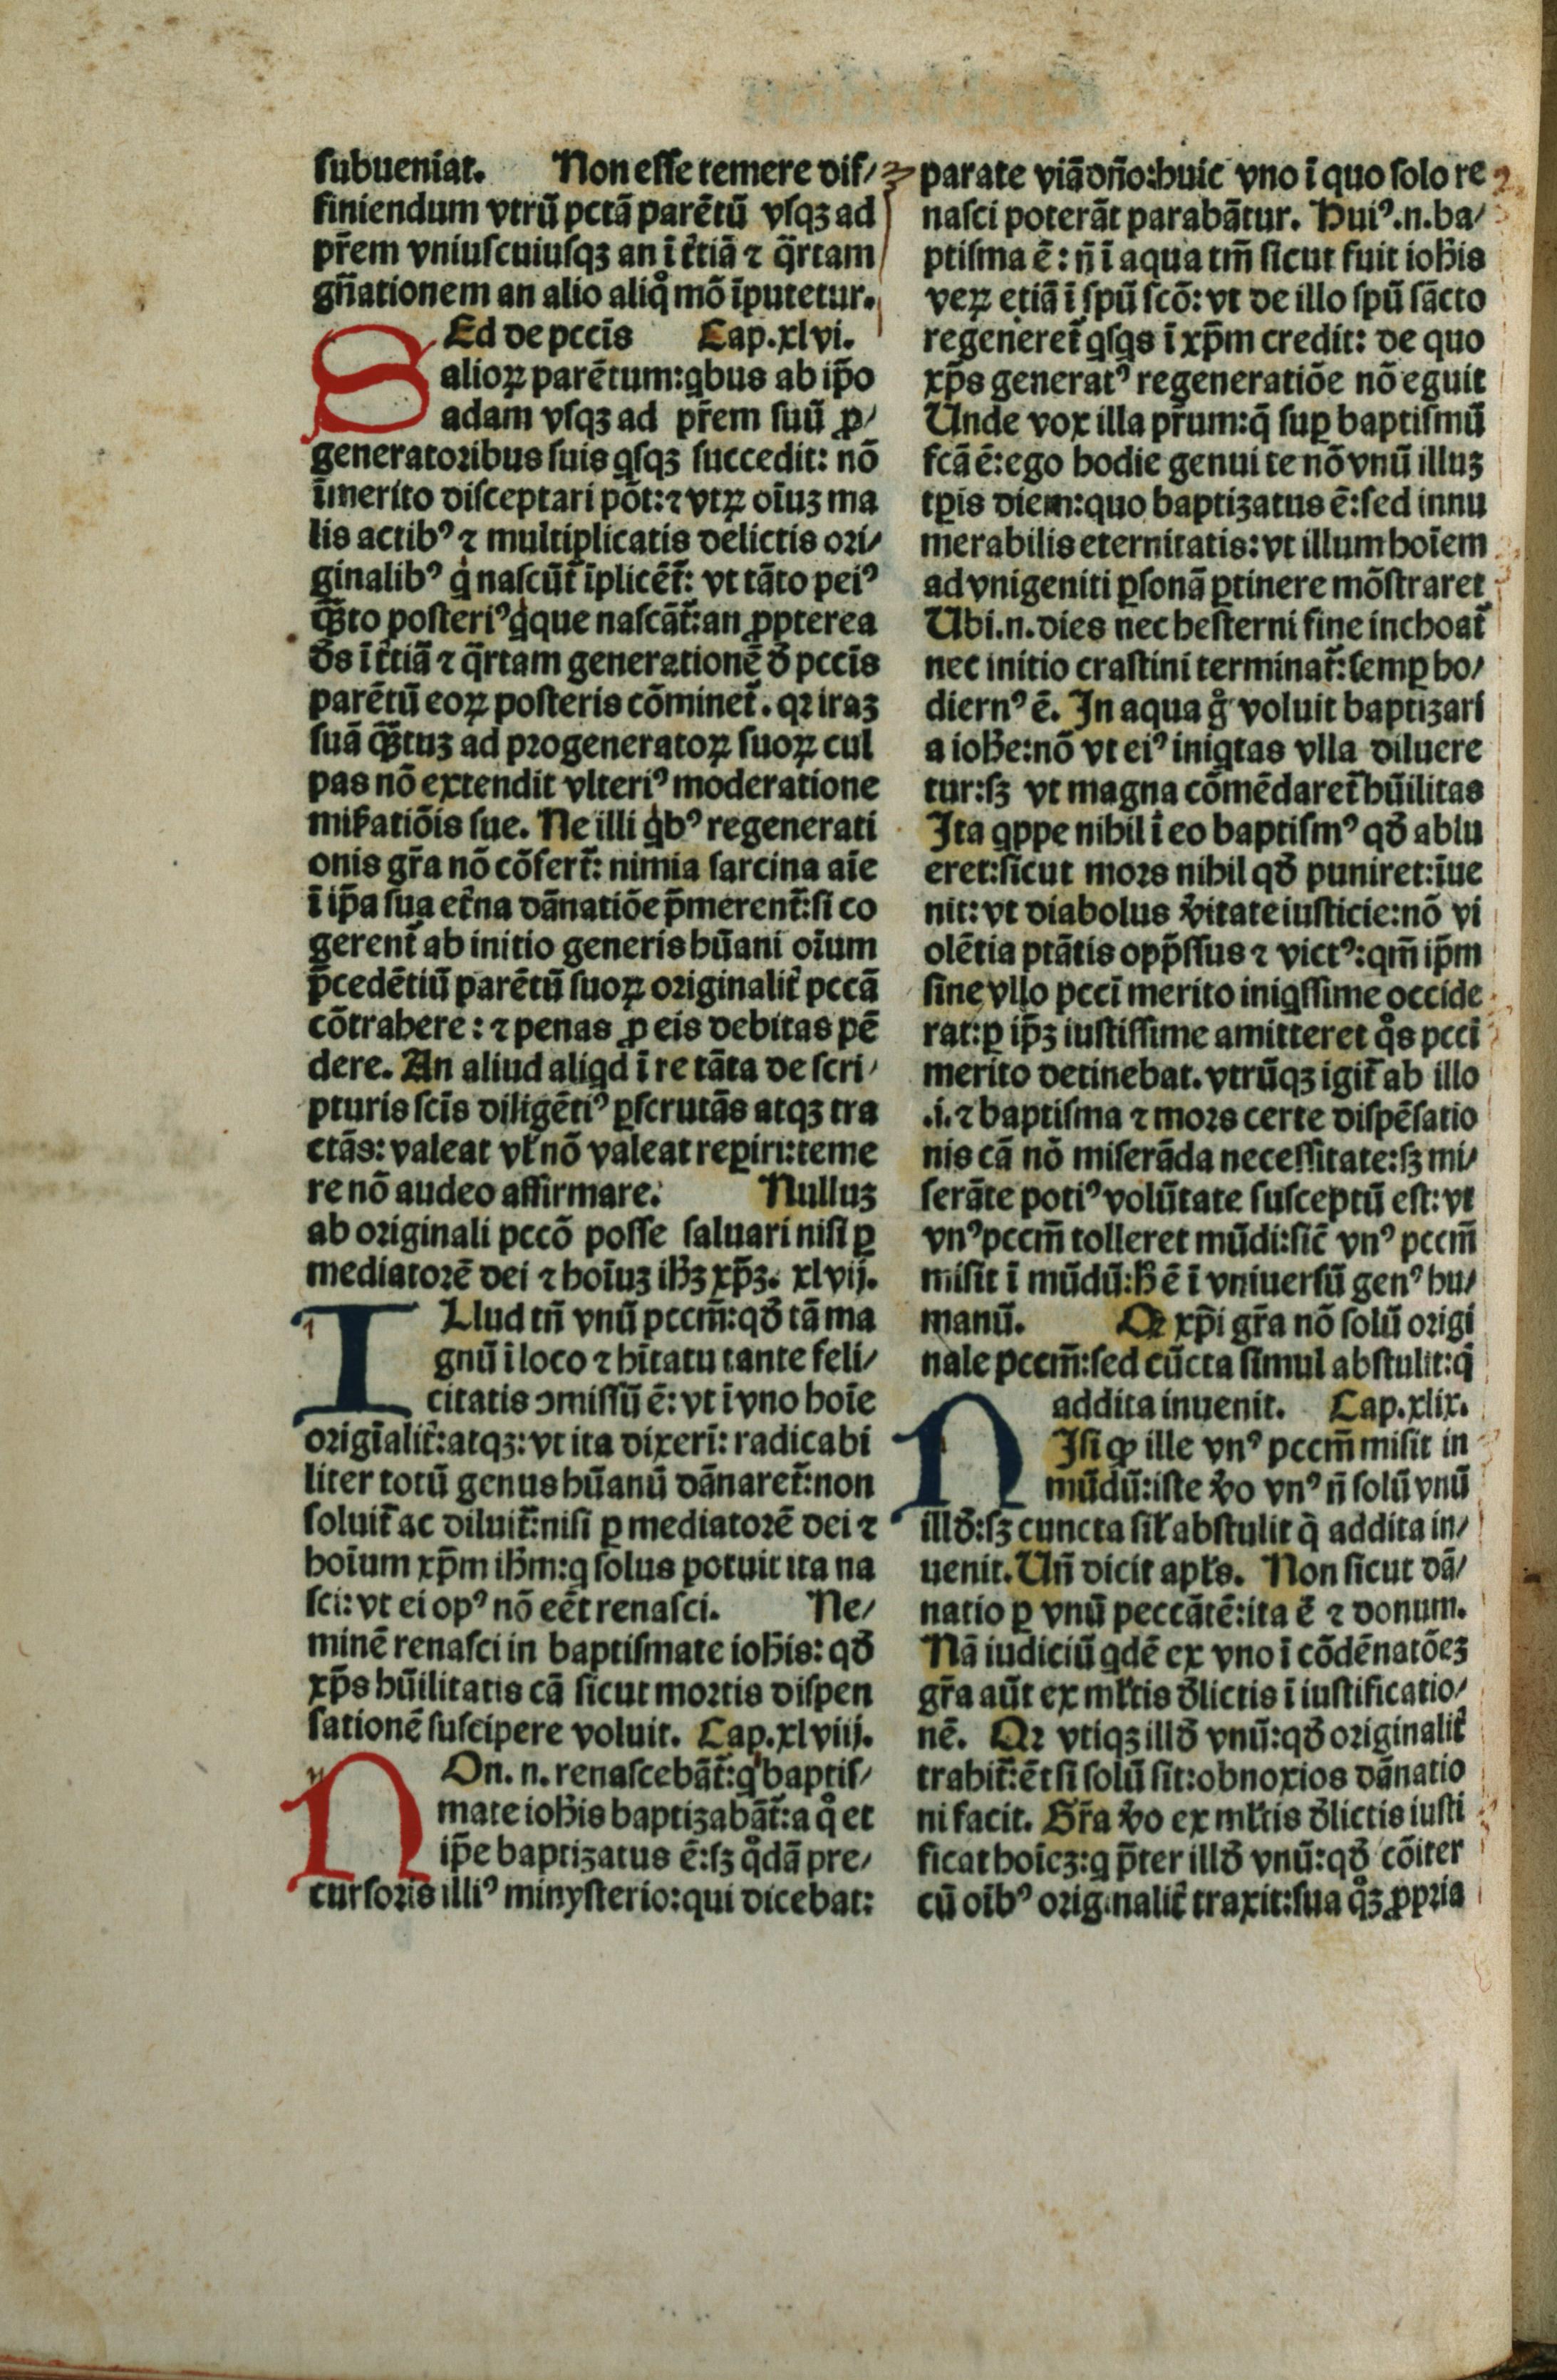 subueniat. Non esse temere dif/
finiendum vtrū pctā parētū vsqꝫ ad
pr̄em vniuscuiusqꝫ an ī t̄ciā ⁊ q̄rtam
gn̄ationem an alio aliqͦ mō īputetur.
SEd de pccīs Cap.xlvi.
alioꝝ parētum:qbus ab ip̄o
adam vsqꝫ ad pr̄em suū ꝓ/
generatoribus suis qsqꝫ succedit: nō
īmerito disceptari pōt:⁊ vtꝝ oīuꝫ ma
lis actibꝰ ⁊ multiplicatis delictis ori/
ginalibꝰ q nascūt̄ īplicēt̄: vt tāto peiꝰ
qꝫ̄to posteriꝰ qque nascāt̄:an ꝓpterea
d̄s ī t̄ciā ⁊ q̄rtam generationē d̄ pccīs
parētū eoꝝ posteris cōminet̄. qꝛ iraꝫ
suā qꝫ̄tuꝫ ad progeneratoꝝ suoꝝ cul
pas nō extendit vlteriꝰ moderatione
miẜatiōis sue. Ne illi qbꝰ regenerati
onis gr̄a nō cōfert̄: nimia sarcina aīe
ī ip̄a sua et̄na dānatiōe p̄merent̄:si co
gerent̄ ab initio generis hūani oīum
p̄cedētiū parētū suoꝝ originalit̄ pccā
cōtrahere: ⁊ penas ꝓ eis debitas pē
dere. An aliud aliqd ī re tāta de scri/
pturis scīs diligētiꝰ ꝑscrutās atqꝫ tra
ctās: valeat vł nō valeat reꝑiri:teme
re nō audeo affirmare. Nulluꝫ
ab originali pccō posse saluari nisi ꝑ
mediatorē dei ⁊ hoīuꝫ ih̄ꝫ xp̄ꝫ. xlvij.
ILlud tn̄ vnū pccm̄:qd̄ tā ma
gnū ī loco ⁊ hītatu tante feli/
citatis ↄmissū ē: vt ī vno hoīe
origīalit̄:atqꝫ: vt ita dixerī: radicabi
liter totū genus hūanū dānaret̄:non
soluit̄ ac diluit̄:nisi ꝑ mediatorē dei ⁊
hoīum xp̄m ih̄m:q solus potuit ita na
sci: vt ei opꝰ nō eēt renasci. Ne/
minē renasci in baptismate ioh̄is: qd̄
xp̄s hūilitatis cā sicut mortis dispen
sationē suscipere voluit. Cap.xlviij.
NOn. n. renascebāt̄:q baptis/
mate ioh̄is baptizabāt̄:a qͦ et
ip̄e baptizatus ē:sꝫ qͦdā pre/
cursoris illiꝰ minysterio:qui dicebat:
parate viā dn̄o:huic vno ī quo solo re
nasci poterāt parabātur. Huiꝰ.n.ba/
ptisma ē: n̄ ī aqua tm̄ sicut fuit ioh̄is
veꝝ etiā ī spū scō: vt de illo spū sācto
regeneret̄ qsqs ī xp̄m credit: de quo
xp̄s generatꝰ regeneratiōe nō eguit
Unde vox illa pr̄um:q̄ suꝑ baptismū
fcā ē:ego hodie genui te nō vnū illuꝫ
tꝑis diem:quo baptizatus ē:sed innu
merabilis eternitatis: vt illum hoīem
ad vnigeniti ꝑsonā ꝑtinere mōstraret
Ubi.n.dies nec hesterni fine inchoat̄
nec initio crastini terminat̄:semꝑ ho/
diernꝰ ē. In aqua gͦ voluit baptizari
a ioh̄e:nō vt eiꝰ iniqtas vlla diluere
tur:sꝫ vt magna cōmēdaret̄ hūilitas
Ita qppe nihil ī eo baptismꝰ qd̄ ablu
eret:sicut mors nihil qd̄ puniret:īue
nit: vt diabolus v̄itate iusticie:nō vi
olētia ptātis opp̄ssus ⁊ victꝰ:qm̄ ip̄m
sine vllo pccī merito iniqssime occide
rat:ꝑ ip̄ꝫ iustissime amitteret qͦs pccī
merito detinebat. vtrūqꝫ igit̄ ab illo
.i. ⁊ baptisma ⁊ mors certe dispēsatio
nis cā nō miserāda necessitate:sꝫ mi/
serāte potiꝰ volūtate susceptū est: vt
vnꝰ pccm̄ tolleret mūdi:sic̄ vnꝰ pccm̄
misit ī mūdū:h̄ ē ī vniuersū genꝰ hu/
manū. Qꝛ xp̄i gr̄a nō solū origi
nale pccm̄:sed cūcta simul abstulit:q̄
addita inuenit. Cap.xlix.
NIsi ꝙ ille vnꝰ pccm̄ misit in
mūdū:iste v̄o vnꝰ n̄ solū vnū
illd̄:sꝫ cuncta sił abstulit q̄ addita in/
uenit. Un̄ dicit apłs. Non sicut dā/
natio ꝑ vnū peccātē:ita ē ⁊ donum.
Nā iudiciū qdē ex vno ī cōdēnatōeꝫ
gr̄a aūt ex młtis d̄lictis ī iustificatio/
nē. Qꝛ vtiqꝫ illd̄ vnū:qd̄ originalit̄
trahit̄:ēt si solū sit:obnoxios dānatio
ni facit. Gr̄a v̄o ex młtis d̄lictis iusti
ficat hoīeꝫ:q p̄ter illd̄ vnū:qd̄ cōiter
cū oībꝰ originalit̄ traxit:sua qͦꝫ ꝓpria